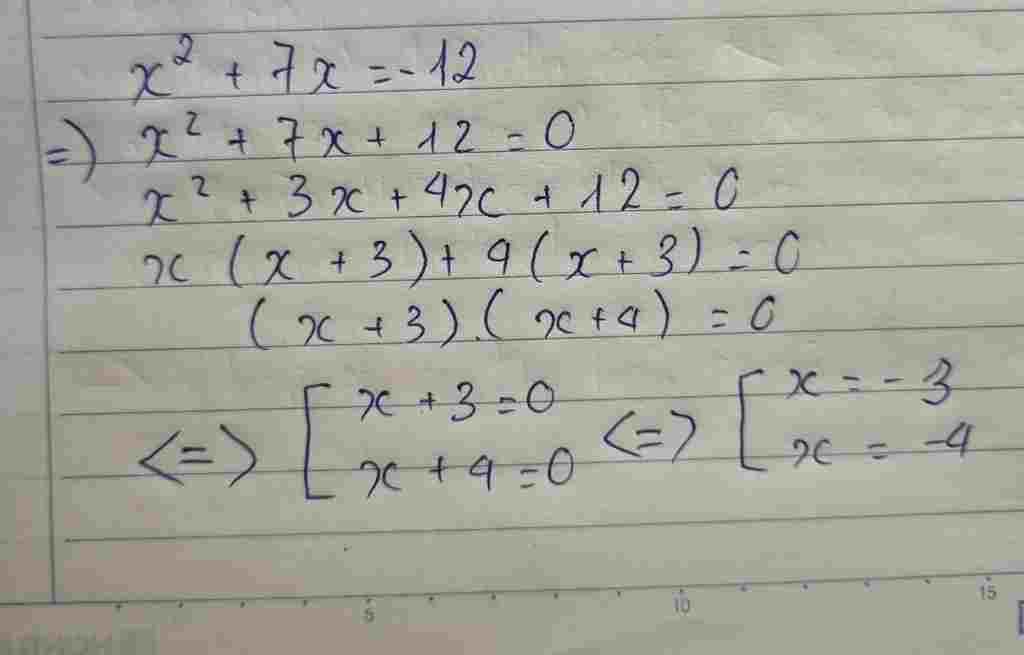 x² + 7x = -12
=) x² + 7x + 12 = 0
x² + 3x + 4x + 12 = 0
x (x + 3) + 4 (x + 3) = 0
(x + 3).(x + 4) = 0
<=> [ x + 3 = 0 <=> [ x = -3
x + 4 = 0 x = -4
5 10 15